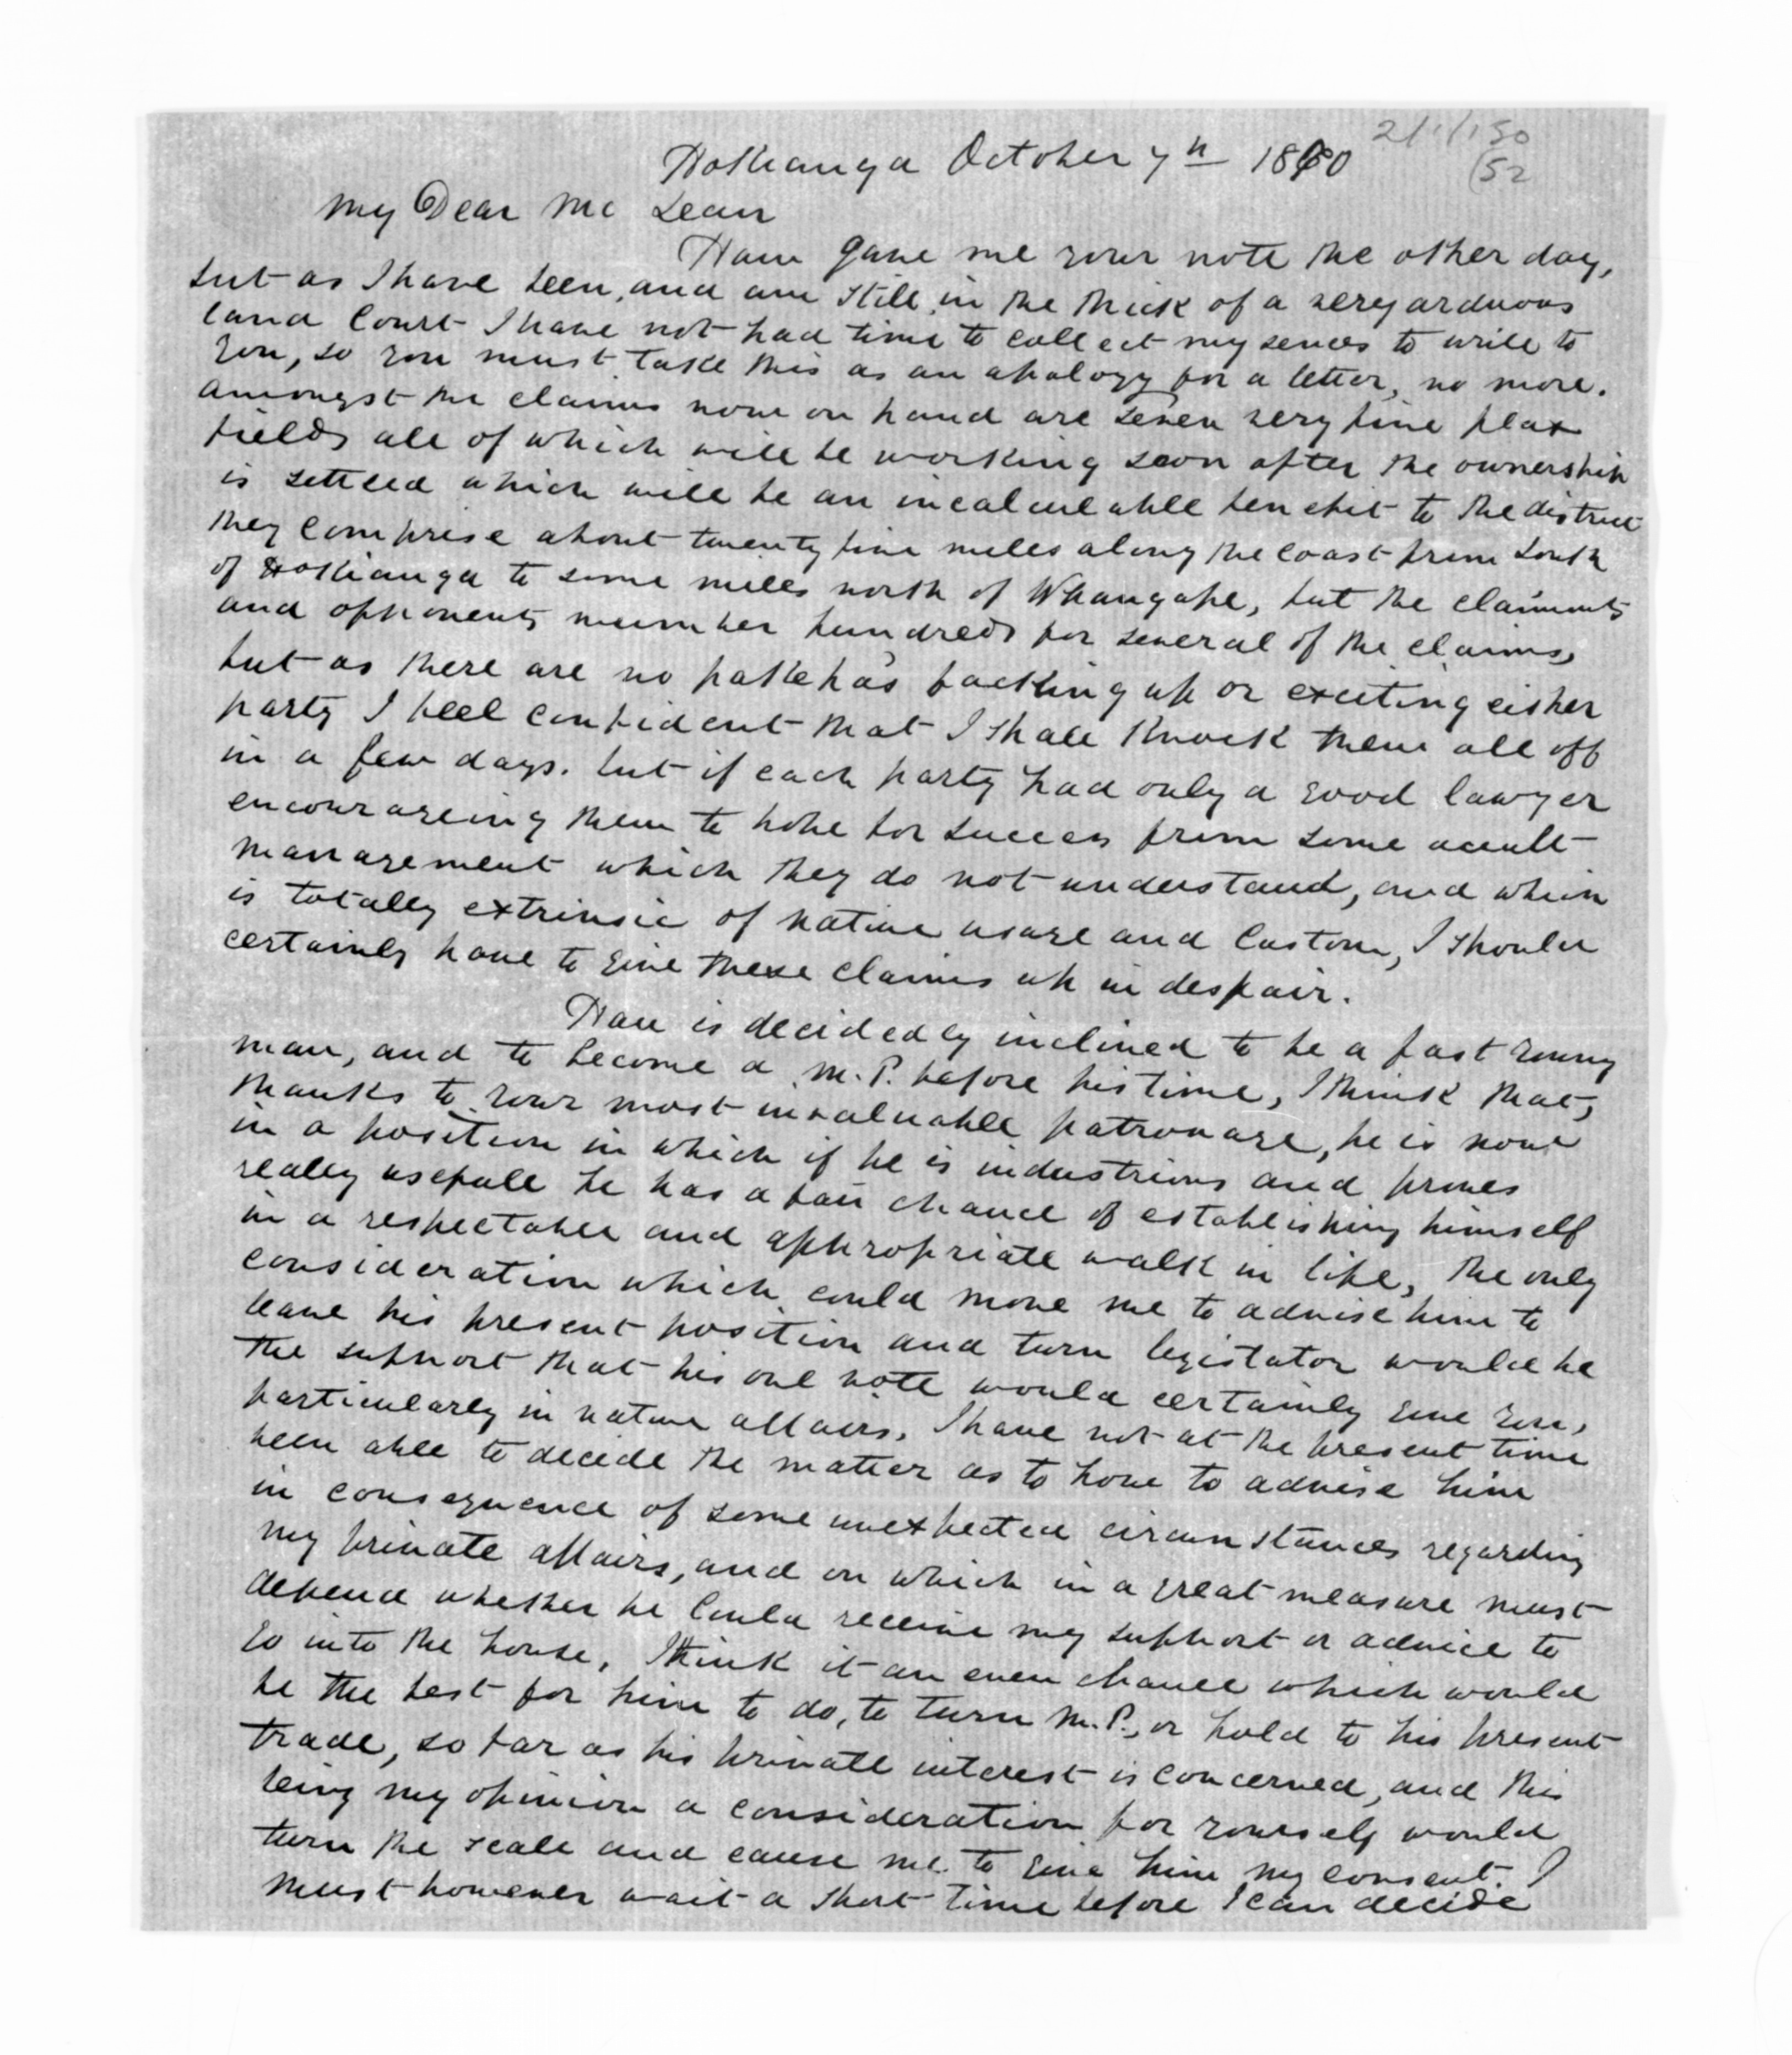 Hokianga October 7th 1870
21/1/150
(52
My Dear McLean
Hau gave me your note the other day,
but as I have been, and am still, in the thick of a very arduous
land Court I have not had time to collect my sences to write to
you, so you must take this as an apology for a letter, no more.
amongst the claims now on hand are seven very fine flax
fields all of which will be working soon after the ownership
is settled which will be an incalculable benefit to the district
they comprise about twenty five miles along the coast from South
of Hokianga to some miles north of Whangape, but the claimants
and opponents number hundreds for several of the claims,
but as there are no pakehas backing up or exciting either
party I feel confident that I shall knock them all off
in a few days. but if each party had only a good lawyer
encourageing them to hope for success from some occult
management which they do not understand, and which
is totally extrinsic of native usage and Custom, I should
certainly have to give these claims up in despair.
Hau is decidedly inclined to be a fast young
man, and to become a M.P. before his time, I think that,
thanks to your most invaluable patronage, he is now
in a position in which if he is industrious and proves
really usefull he has a fair chance of establishing himself
in a respectable and appropriate walk in life, the only
consideration which could move me to advise him to
leave his present position and turn legistator would be
the support that his one vote would certainly give you,
particularly in native affairs. I have not at the present time
been able to decide the matter as to how to advise him
in consequence of some unexpected circumstances regarding
my private affairs, and on which in a great measure must
depend whether he Could receive my support or advice to
go into the house, I think it an even chance which would
be the best for him to do, to turn M.P., or hold to his present
trade, so far as his private interest is concerned, and this
being my opinion a consideration for yourself would
turn the scale and cause me to give him my consent. I
must however wait a short time before I can decide